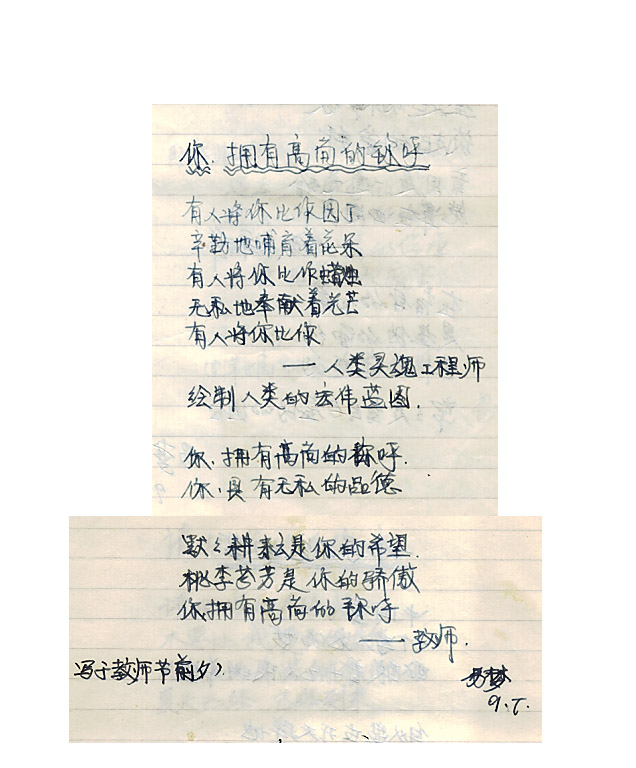 你,拥有高尚的称呼
有人将你比作园丁
辛勤地哺育着花朵
有人将你比作蜡烛
无私地奉献着光芒
有人将你比作
——人类灵魂工程师
绘制人类的宏伟蓝图.
你,拥有高尚的称呼.
你,具有无私的品德
默々耕耘是你的希望.
桃李芬芳是你的骄傲
你,拥有高尚的称呼
——教师.
写于教师节前夕)
梦
9.